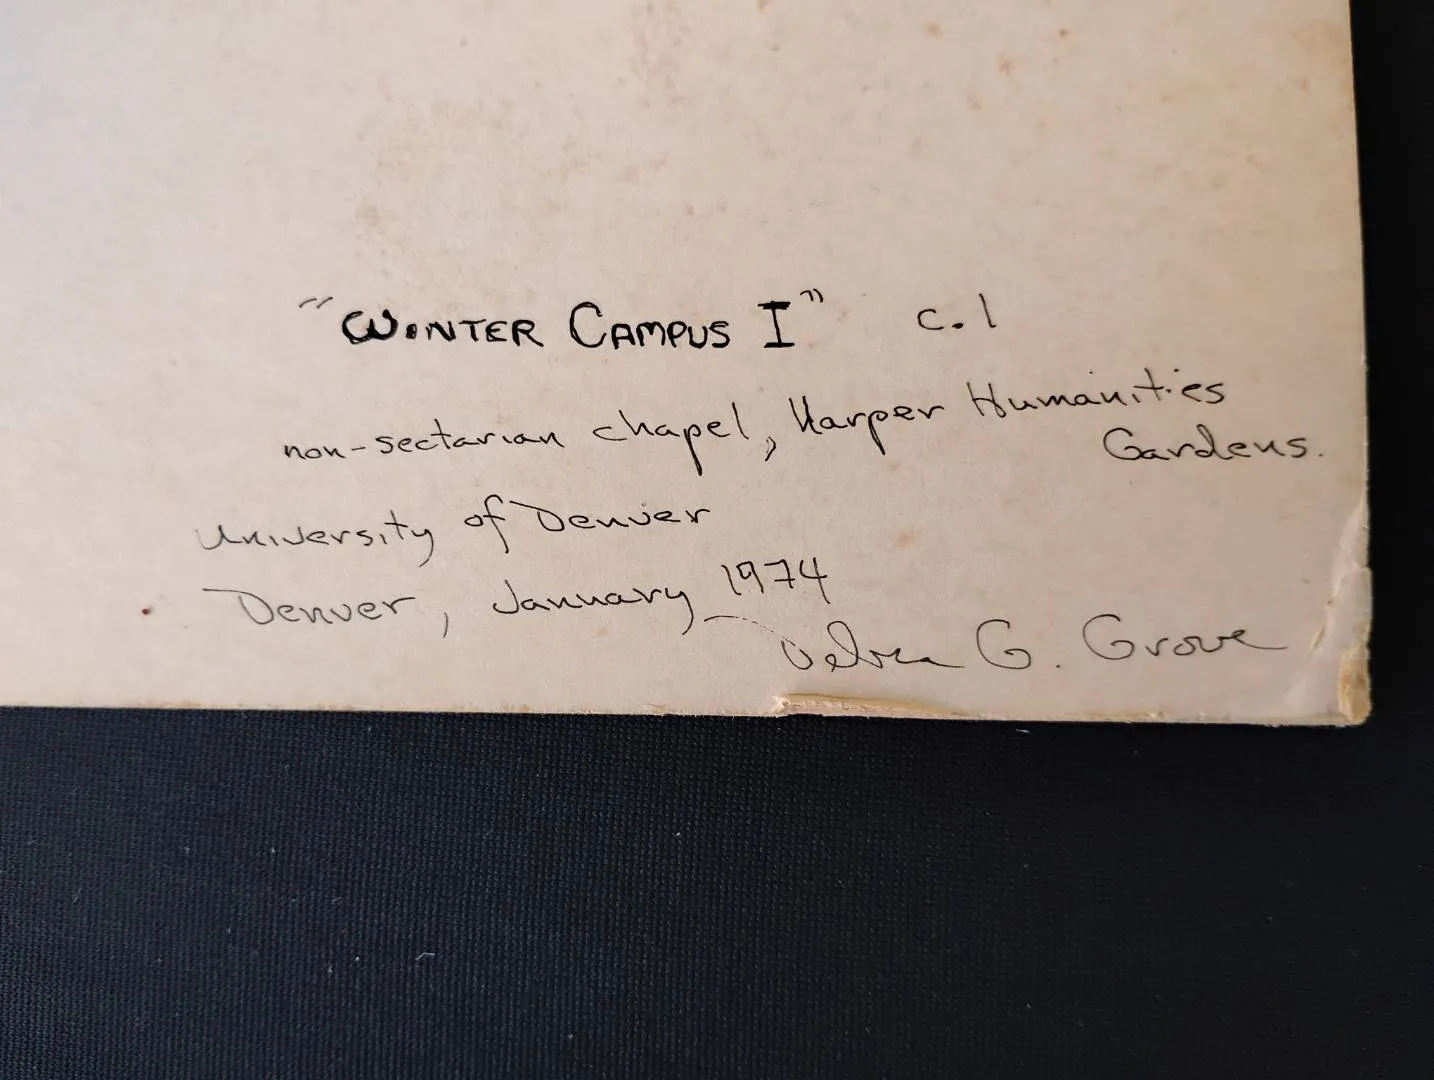 "WINTER CAMPUS I" c. 1
non-sectarian chapel, Harper Humanities
Gardens.
University of Denver
Denver, January 1974
G. Grove